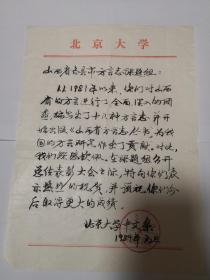 北京大学
山西省各县市方言志课题组:
从1981年以来,你们对山西
省的方言进行了全面深入的调
查,编写出了十八种方言志,并开
始出版《山西省方言志丛书》,为我
国的方言研究作出了贡献。对此,
我们
总结表彰大会之际,特向你们表
示热烈的祝贺,并预祝你们今
后取得更大的成绩。
北京大学中文系
1984年